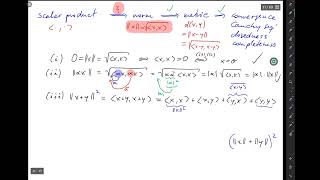 scalar product → norm → metric → convergence
<·,·> ‖x‖=√<x,x> d(x,y) Cauchy sq'
=‖x-y‖ closedness
=√<x-y,x-y> completeness
(i) 0=‖x‖=√<x,x> ⇔ <x,x>=0 ⇔ x=0
(ii) ‖αx‖=√<αx,αx>=√αᾱ<x,x>=|α|√<x,x>=|α|·‖x‖
(iii) ‖x+y‖²=<x+y,x+y>=<x,x>+<x,y>+<y,x>+<y,y>
‖x‖²
(‖x‖+‖y‖)²